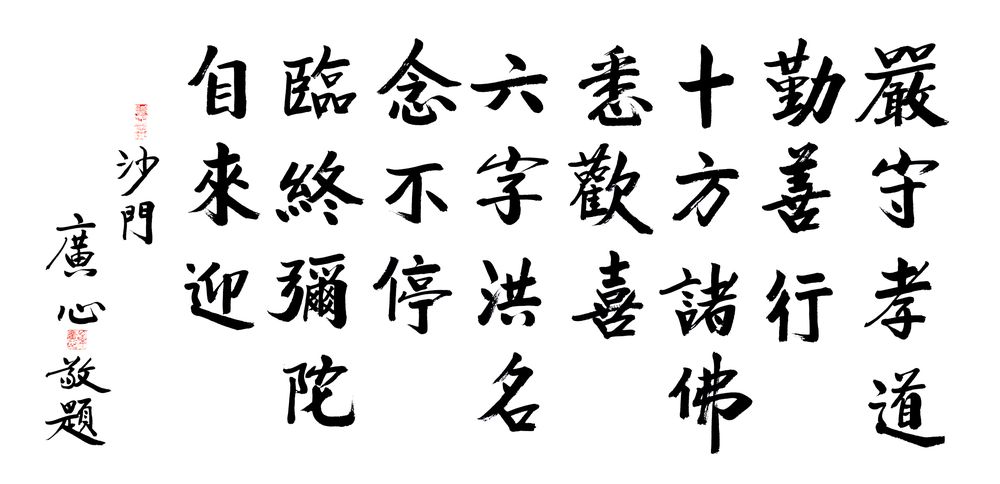 嚴守孝道
勤善行
十方諸佛
悉歡喜
六字洪名
念不停
臨終彌陀
自來迎
沙門
廣心敬題